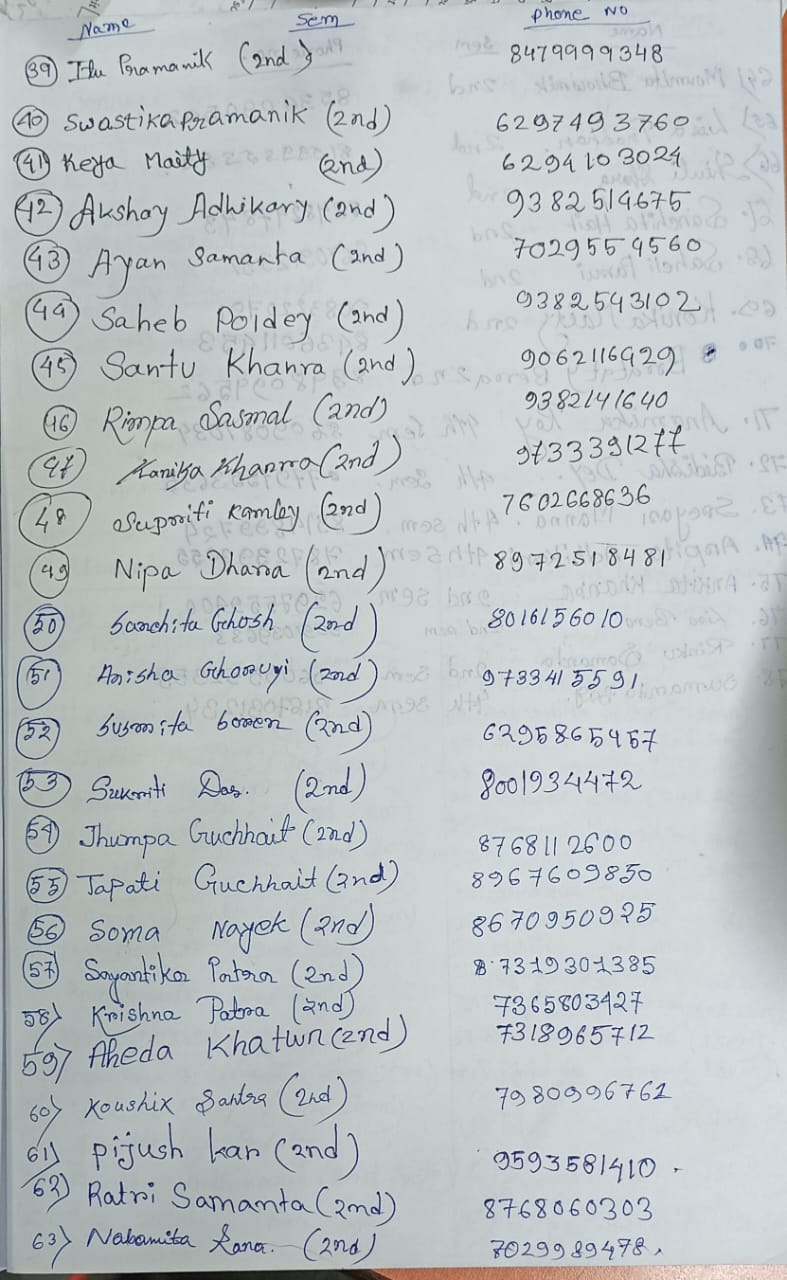 Name Sem Phone No
39 Itu Pramanik (2nd) 8479999348
40 Swastika Pramanik (2nd) 6297493760
41 Keya Maity (2nd) 6294103024
42 Akshay Adhikary (2nd) 9382514675
43 Ayan Samanta (2nd) 7029554560
44 Saheb Poidey (2nd) 9382543102
45 Santu Khanra (2nd) 9062116929
46 Rimpa Sasmal (2nd) 9382141640
47 Kanika Khanra (2nd) 9733391277
48 Supriti Kamley (2nd) 7602668636
49 Nipa Dhara (2nd) 8972518481
50 Sanchita Ghosh (2nd) 8016156010
51 Anisha Ghoruyi (2nd) 9733415591
52 Susmita (2nd) 6295865457
53 Sukriti Das. (2nd) 8001934472
54 Jhumpa Guchhait (2nd) 8768112600
55 Tapati Guchhait (2nd) 8967609850
56 Soma Nayek (2nd) 8670950925
57 Sayantika Patra (2nd) 7319301385
58) Krishna Patra (2nd) 7365803427
59) Aheda Khatun (2nd) 7318965712
60) Koushix Santra (2nd) 7980996761
61) Pijush kar (2nd) 9593581410.
62) Ratri Samanta (2nd) 8768060303
63) Nabamita Rana. (2nd) 7029989478.